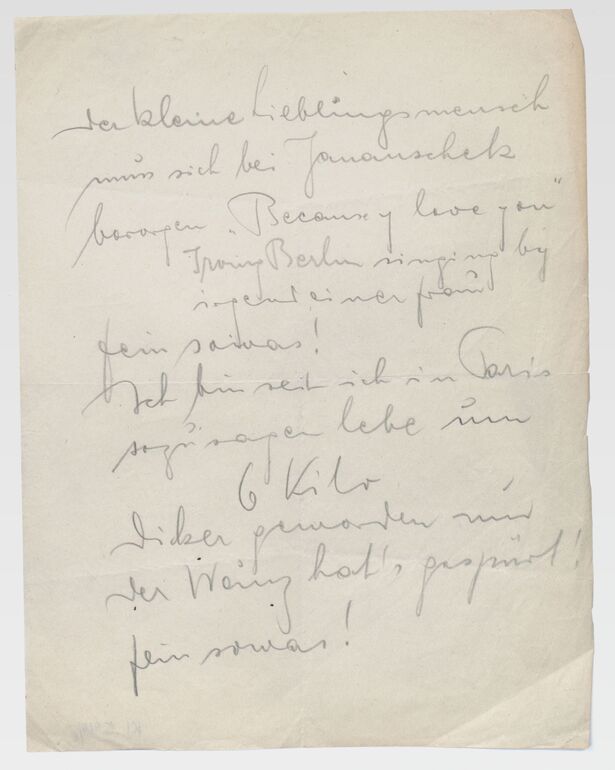 der kleine Lieblingsmensch
muss sich bei Janauschek
besorgen „Because y love you"
Irving Berlin singing by
irgend einer frau
fein sowas!
Ich bin seit ich in Paris
sozusagen lebe um
6 Kilo
dicker geworden und
der hat's gespürt!
fein sowas!